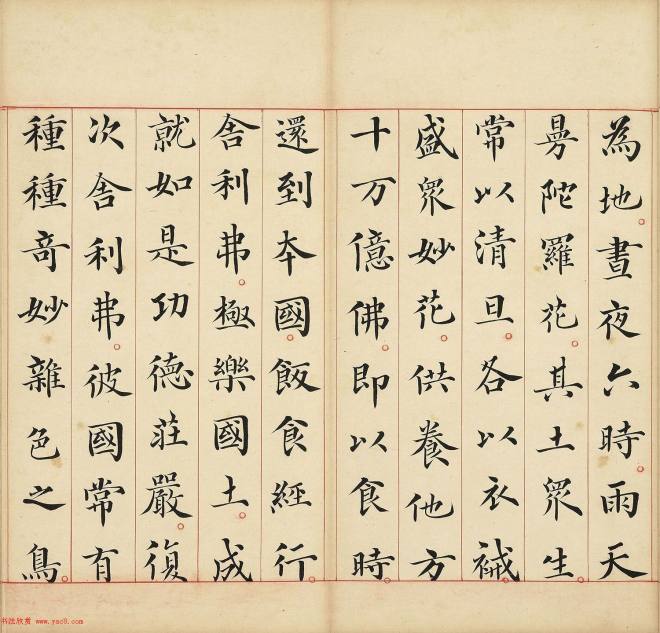 為地晝夜六時雨天
曼陀羅花其土眾生
常以清旦各以衣祴
盛眾妙花供養他方
十万億佛即以食時
還到本國飯食經行
舎利弗極樂國土成
就如是功德莊嚴復
次舎利弗彼國常有
種種奇妙雜色之鳥
书法欣赏 www.yac8.com